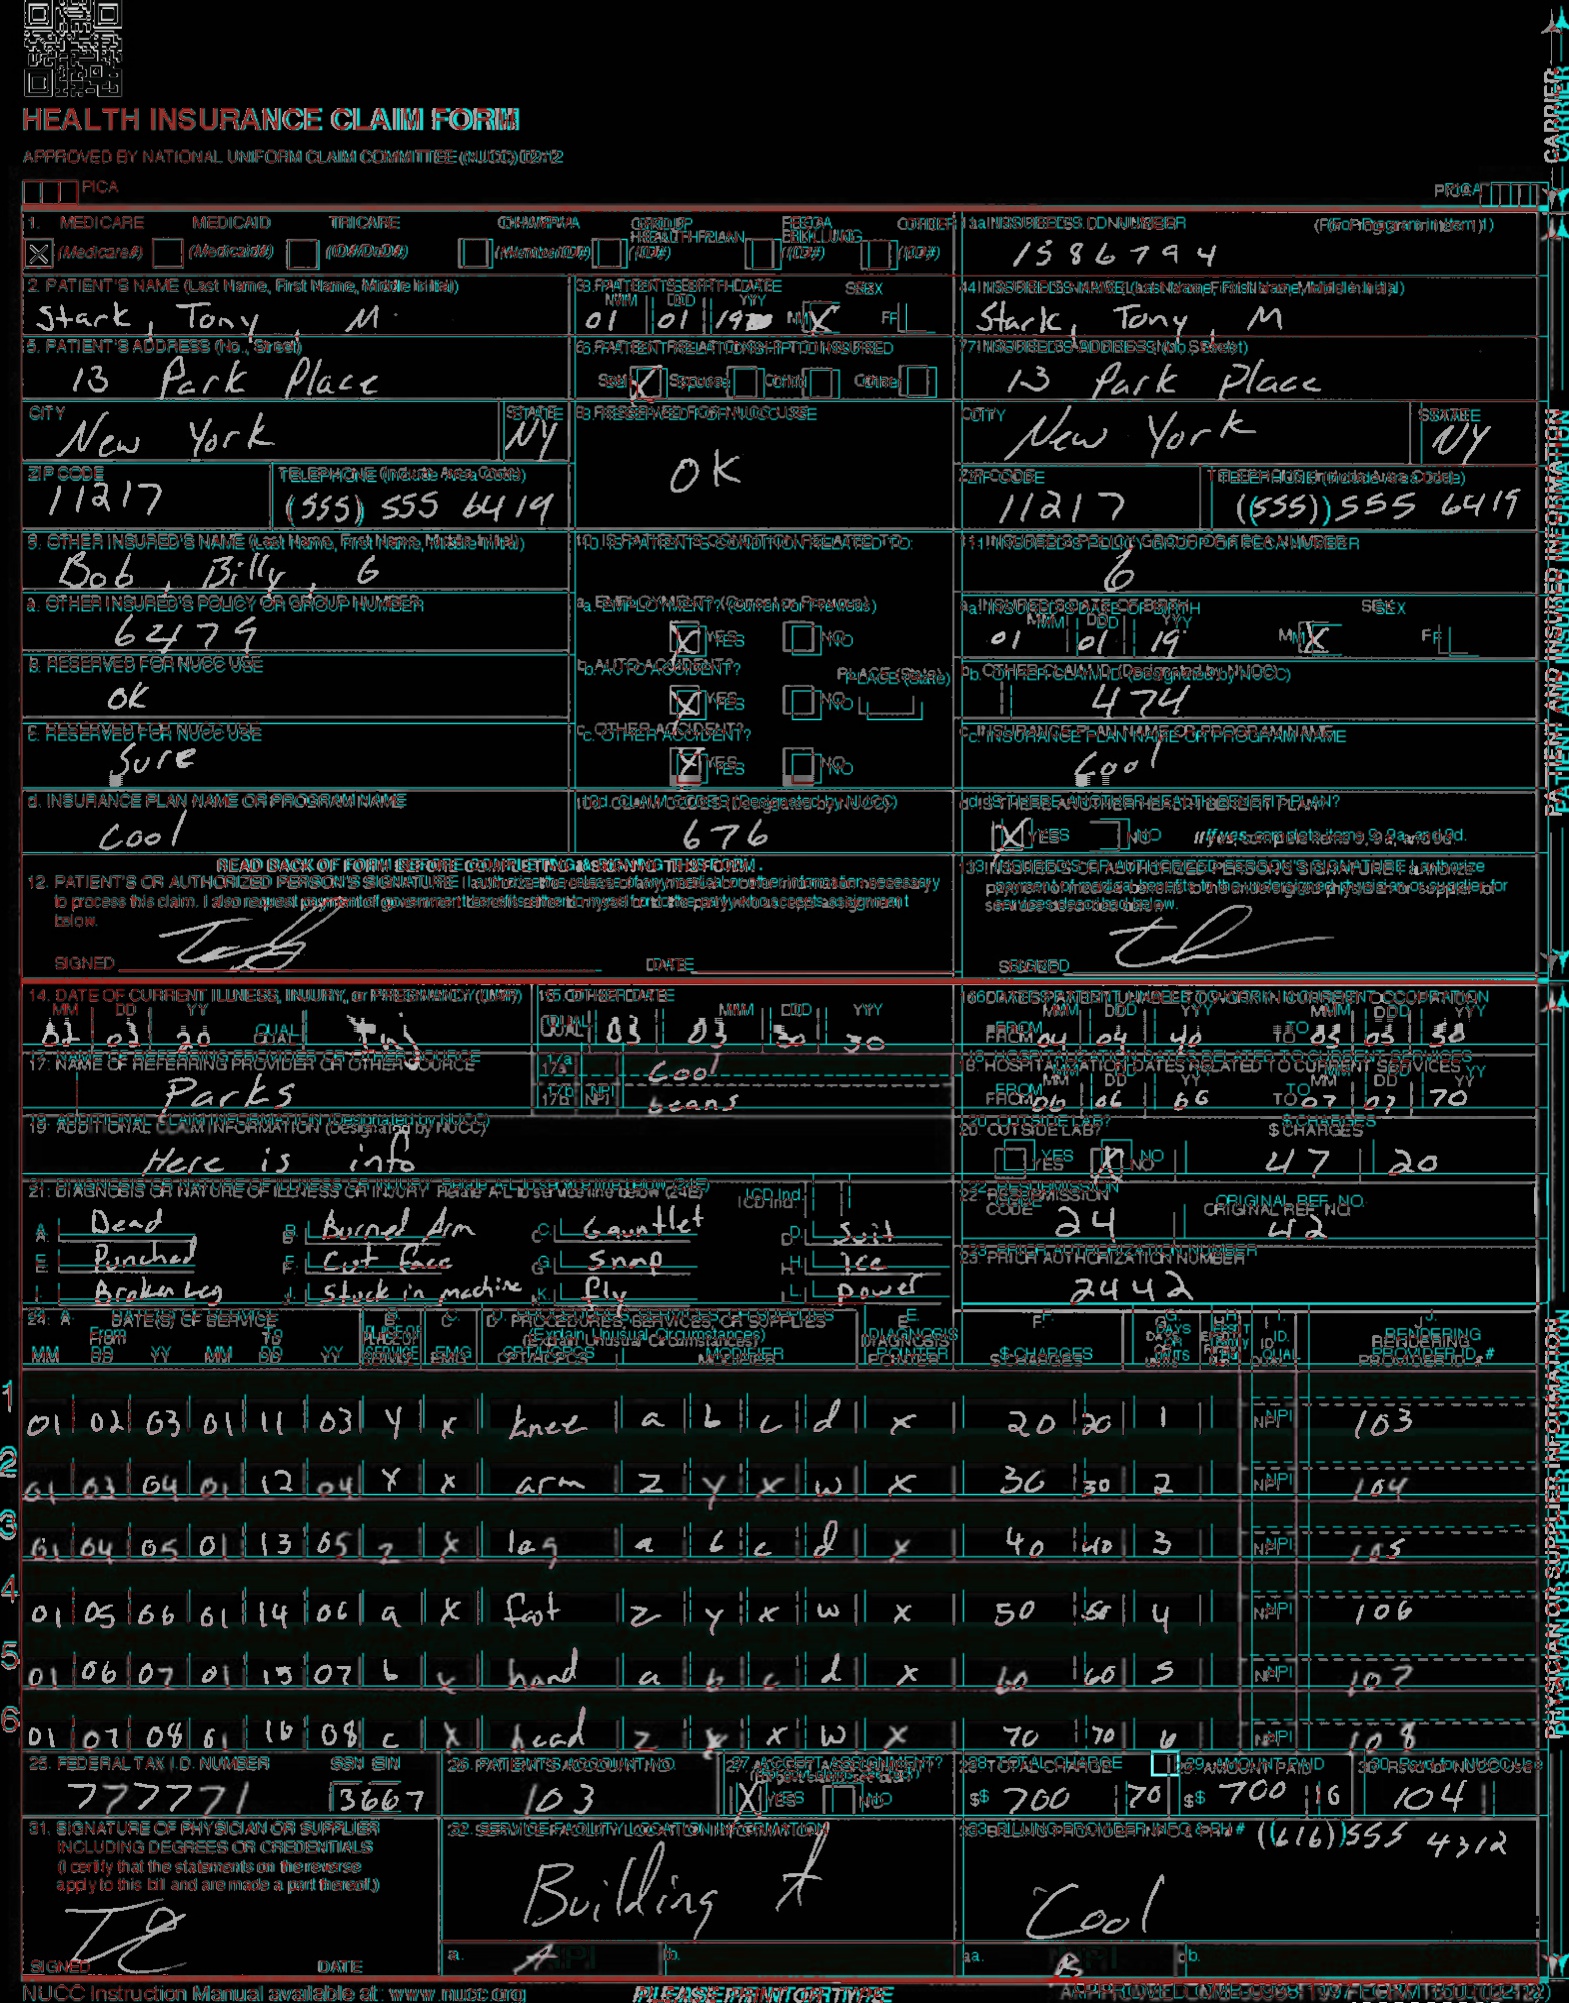 HEALTH INSURANCE CLAIM FORM
APPROVED BY NATIONAL UNIFORM CLAIM COMMITTEE (NUCC) 02/12
PICA PICA
CARRIER
1. MEDICARE MEDICAID TRICARE CHAMPVA GROUP HEALTH PLAN FECA BLK LUNG OTHER
(Medicare#) (Medicaid#) (ID#/DoD#) (Member ID#) (ID#) (ID#) (ID#)
1a. INSURED'S I.D. NUMBER (For Program in Item 1)
1586794
2. PATIENT'S NAME (Last Name, First Name, Middle Initial)
Stark, Tony, M
3. PATIENT'S BIRTH DATE SEX
MM DD YY
01 01 19 M X F
4. INSURED'S NAME (Last Name, First Name, Middle Initial)
Stark, Tony, M
5. PATIENT'S ADDRESS (No., Street)
13 Park Place
6. PATIENT RELATIONSHIP TO INSURED
Self X Spouse Child Other
7. INSURED'S ADDRESS (No., Street)
13 Park Place
CITY STATE
New York NY
8. RESERVED FOR NUCC USE
OK
CITY STATE
New York NY
ZIP CODE TELEPHONE (Include Area Code)
11217 (555) 555 6419
ZIP CODE TELEPHONE (Include Area Code)
11217 (555) 555 6419
9. OTHER INSURED'S NAME (Last Name, First Name, Middle Initial)
Bob, Billy, G
10. IS PATIENT'S CONDITION RELATED TO:
11. INSURED'S POLICY GROUP OR FECA NUMBER
6
a. OTHER INSURED'S POLICY OR GROUP NUMBER
6479
a. EMPLOYMENT? (Current or Previous)
X YES NO
a. INSURED'S DATE OF BIRTH SEX
MM DD YY
01 01 19 M X F
b. RESERVED FOR NUCC USE
OK
b. AUTO ACCIDENT? PLACE (State)
X YES NO
b. OTHER CLAIM ID (Designated by NUCC)
474
c. RESERVED FOR NUCC USE
Sure
c. OTHER ACCIDENT?
X YES NO
c. INSURANCE PLAN NAME OR PROGRAM NAME
Cool
d. INSURANCE PLAN NAME OR PROGRAM NAME
Cool
10d. CLAIM CODES (Designated by NUCC)
676
d. IS THERE ANOTHER HEALTH BENEFIT PLAN?
X YES NO If yes, complete items 9, 9a, and 9d.
READ BACK OF FORM BEFORE COMPLETING & SIGNING THIS FORM.
12. PATIENT'S OR AUTHORIZED PERSON'S SIGNATURE I authorize the release of any medical or other information necessary
to process this claim. I also request payment of government benefits either to myself or to the party who accepts assignment
below.
SIGNED DATE
13. INSURED'S OR AUTHORIZED PERSON'S SIGNATURE I authorize
payment of medical benefits to the undersigned physician or supplier for
services described below.
SIGNED
PATIENT AND INSURED INFORMATION
14. DATE OF CURRENT ILLNESS, INJURY, or PREGNANCY (LMP)
MM DD YY
02 03 20 QUAL.
15. OTHER DATE
QUAL. MM DD YY
03 03 30 30
16. DATES PATIENT UNABLE TO WORK IN CURRENT OCCUPATION
MM DD YY MM DD YY
FROM 04 04 40 TO 05 05 50
17. NAME OF REFERRING PROVIDER OR OTHER SOURCE
Parks
17a. Cool
17b. NPI beans
18. HOSPITALIZATION DATES RELATED TO CURRENT SERVICES
MM DD YY MM DD YY
FROM 06 06 66 TO 07 07 70
19. ADDITIONAL CLAIM INFORMATION (Designated by NUCC)
Here is info
20. OUTSIDE LAB? $ CHARGES
YES X NO 47 20
21. DIAGNOSIS OR NATURE OF ILLNESS OR INJURY Relate A-L to service line below (24E) ICD Ind.
A. Dead B. Burned Arm C. Gauntlet D. Suit
E. Punched F. Cut face G. Snap H. Ice
I. Broken Leg J. Stuck in machine K. fly L. power
22. RESUBMISSION
CODE ORIGINAL REF. NO.
24 42
23. PRIOR AUTHORIZATION NUMBER
2442
24. A. DATE(S) OF SERVICE B. C. D. PROCEDURES, SERVICES, OR SUPPLIES E. F. G. H. I. J.
From To PLACE OF SERVICE EMG (Explain Unusual Circumstances) DIAGNOSIS POINTER $ CHARGES DAYS OR UNITS ID. QUAL. RENDERING PROVIDER ID. #
MM DD YY MM DD YY CPT/HCPCS MODIFIER
1 01 02 03 01 11 03 Y x knee a b c d x 20 20 1 NPI 103
2 01 03 04 01 12 04 Y x arm z y x w x 30 30 2 NPI 104
3 01 04 05 01 13 05 z x leg a b c d x 40 40 3 NPI 105
4 01 05 06 01 14 06 a x foot z y x w x 50 50 4 NPI 106
5 01 06 07 01 15 07 b x hand a b c d x 60 60 5 NPI 107
6 01 07 08 01 16 08 c x head z y x w x 70 70 6 NPI 108
25. FEDERAL TAX I.D. NUMBER SSN EIN
777771 3667
26. PATIENT'S ACCOUNT NO.
103
27. ACCEPT ASSIGNMENT?
X YES NO
28. TOTAL CHARGE
$ 700 70
29. AMOUNT PAID
$ 700 16
30. Rsvd for NUCC Use
104
31. SIGNATURE OF PHYSICIAN OR SUPPLIER
INCLUDING DEGREES OR CREDENTIALS
(I certify that the statements on the reverse
apply to this bill and are made a part thereof.)
SIGNED DATE
32. SERVICE FACILITY LOCATION INFORMATION
Building A
a. A b.
33. BILLING PROVIDER INFO & PH # (616) 555 4312
Cool
a. B b.
PHYSICIAN OR SUPPLIER INFORMATION
NUCC Instruction Manual available at: www.nucc.org
PLEASE PRINT OR TYPE